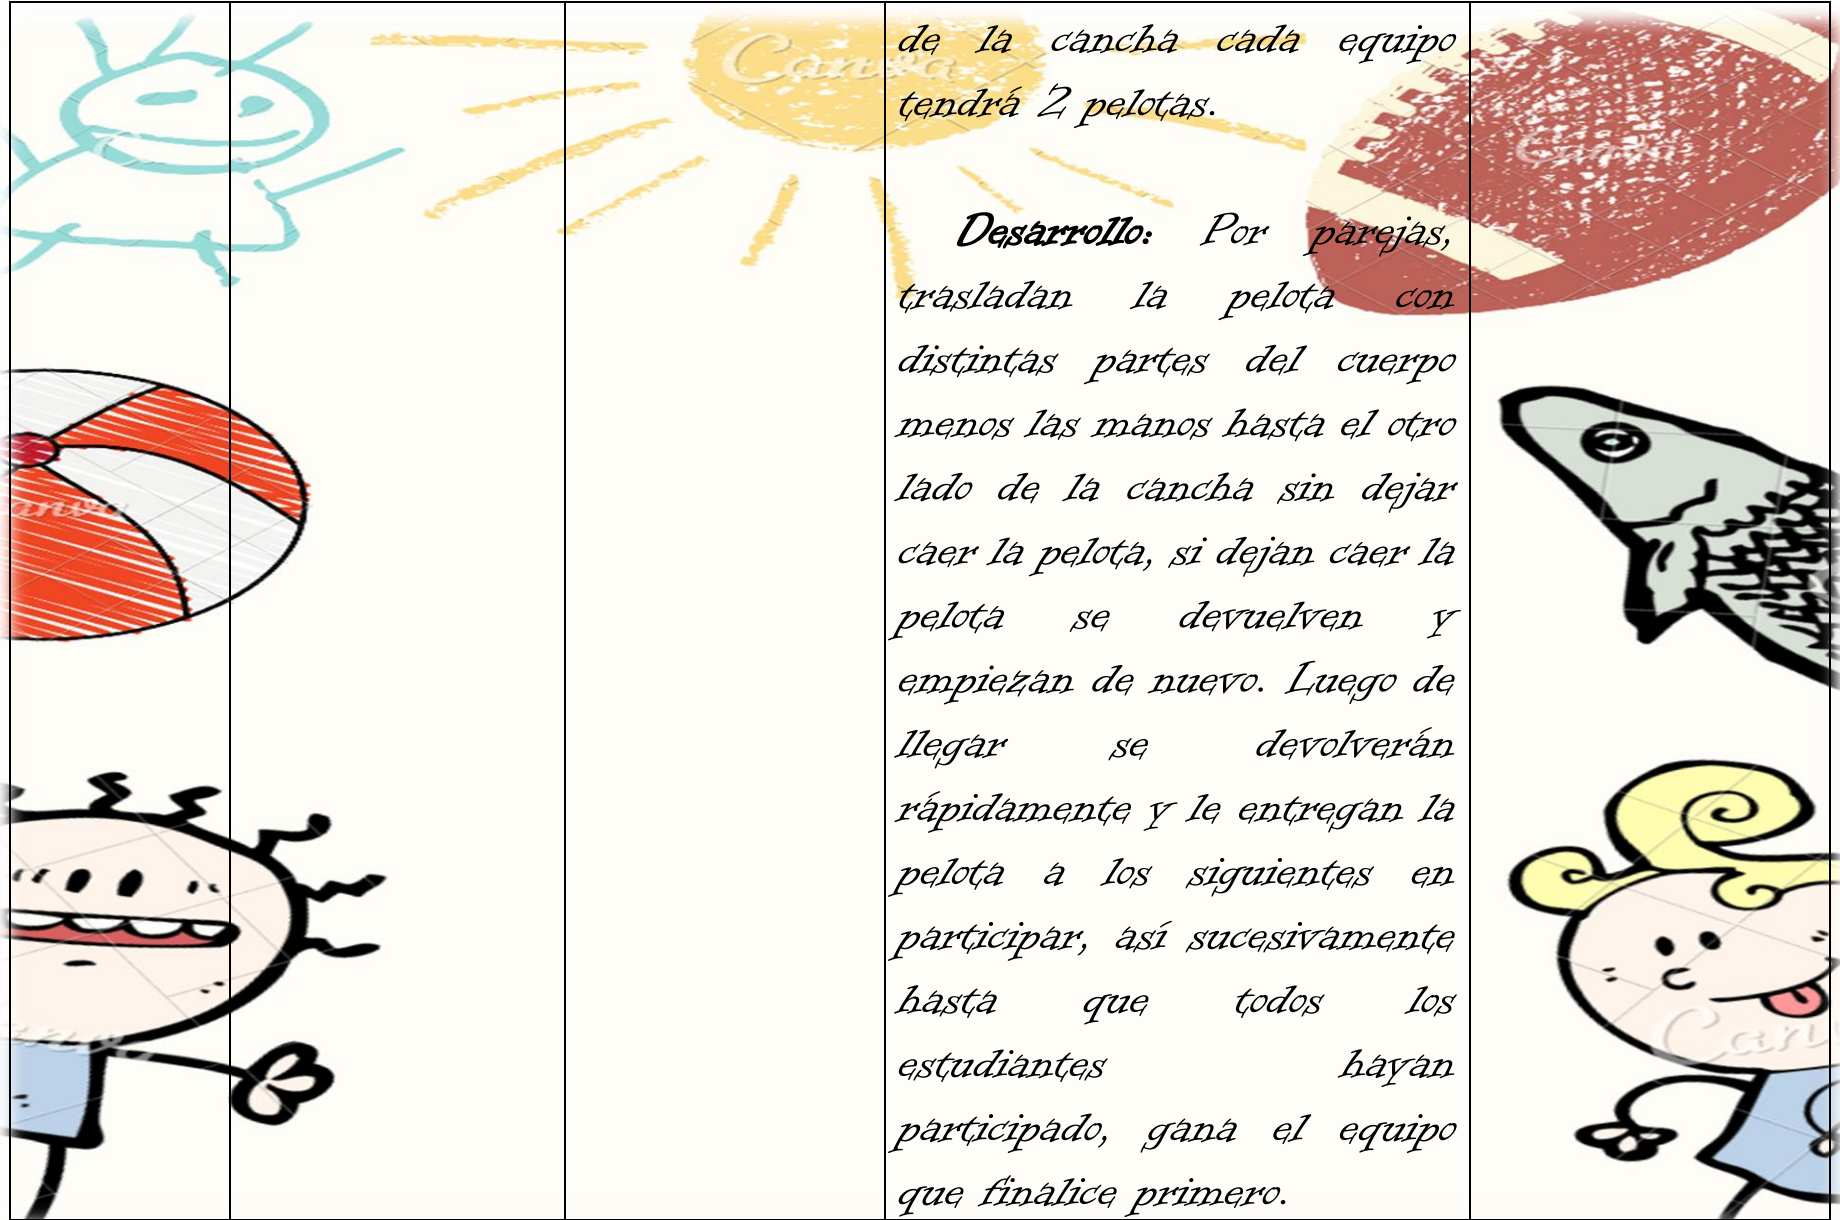 de la cancha cada equipo
tendrá 2 pelotas.
Desarrollo: Por parejas,
trasladan la pelota con
distintas partes del cuerpo
menos las manos hasta el otro
lado de la cancha sin dejar
caer la pelota, si dejan caer la
pelota se devuelven y
empiezan de nuevo. Luego de
llegar se devolverán
rápidamente y le entregan la
pelota a los siguientes en
participar, así sucesivamente
hasta que todos los
estudiantes hayan
participado, gana el equipo
que finalice primero.
Canva
Canva
anva
Canv